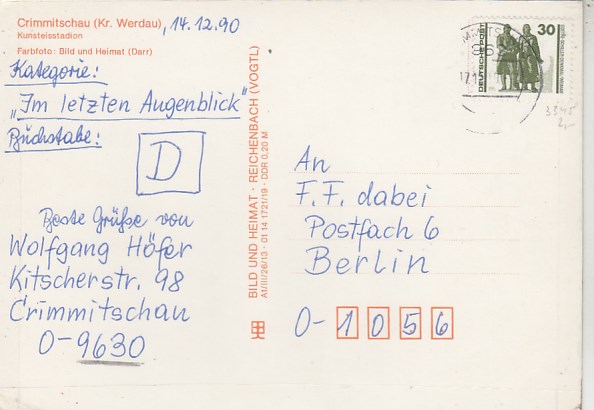 Crimmitschau (Kr. Werdau) , 14.12.90
Kunsteisstadion
Farbfoto: Bild und Heimat (Darr)
Kategorie:
„Im letzten Augenblick"
Buchstabe:
D
Beste Grüße von
Wolfgang Höfer
Kitscherstr. 98
Crimmitschau
O-9630
BILD UND HEIMAT · REICHENBACH (VOGTL)
A1/III/26/13 · 01 14 1721/19 · DDR 0,20 M
DEUTSCHE POST
30
An
F.F. dabei
Postfach 6
Berlin
O- 1 0 5 6